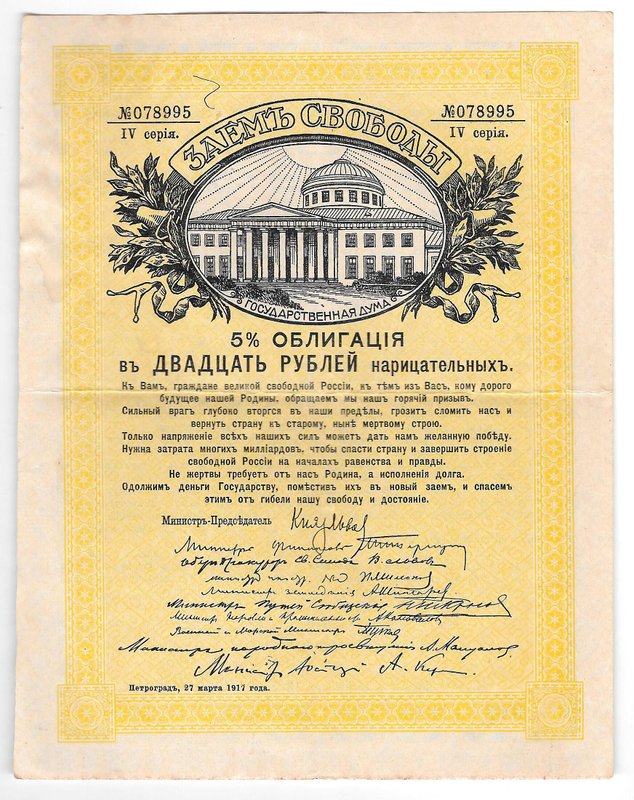 №078995
IV серія.
№078995
IV серія.
ЗАЕМЪ СВОБОДЫ
ГОСУДАРСТВЕННАЯ ДУМА
5% ОБЛИГАЦІЯ
въ ДВАДЦАТЬ РУБЛЕЙ нарицательныхъ.
Къ Вамъ, граждане великой свободной Россіи, къ тѣмъ изъ Васъ, кому дорого
будущее нашей Родины, обращаемъ мы нашъ горячій призывъ.
Сильный врагъ глубоко вторгся въ наши предѣлы, грозитъ сломить насъ и
вернуть страну къ старому, нынѣ мертвому строю.
Только напряженіе всѣхъ нашихъ силъ можетъ дать намъ желанную побѣду.
Нужна затрата многихъ милліардовъ, чтобы спасти страну и завершить строеніе
свободной Россіи на началахъ равенства и правды.
Не жертвы требуетъ отъ насъ Родина, а исполненія долга.
Одолжимъ деньги Государству, помѣстивъ ихъ въ новый заемъ, и спасемъ
этимъ отъ гибели нашу свободу и достояніе.
Министръ-Предсѣдатель Князь Львов
Министръ Финансовъ
Оберъ-Прокуроръ Св. Синода В. Львовъ
Министръ земледѣлія А. Шингарев
Министръ Путей Сообщенія Н. Некрасов
Министръ Торговли и Промышленности А. Коновалов
Военный и Морской Министръ
Министръ народнаго просвѣщенія А. Мануилов
Министр Юстиціи А. Кер
Петроградъ, 27 марта 1917 года.